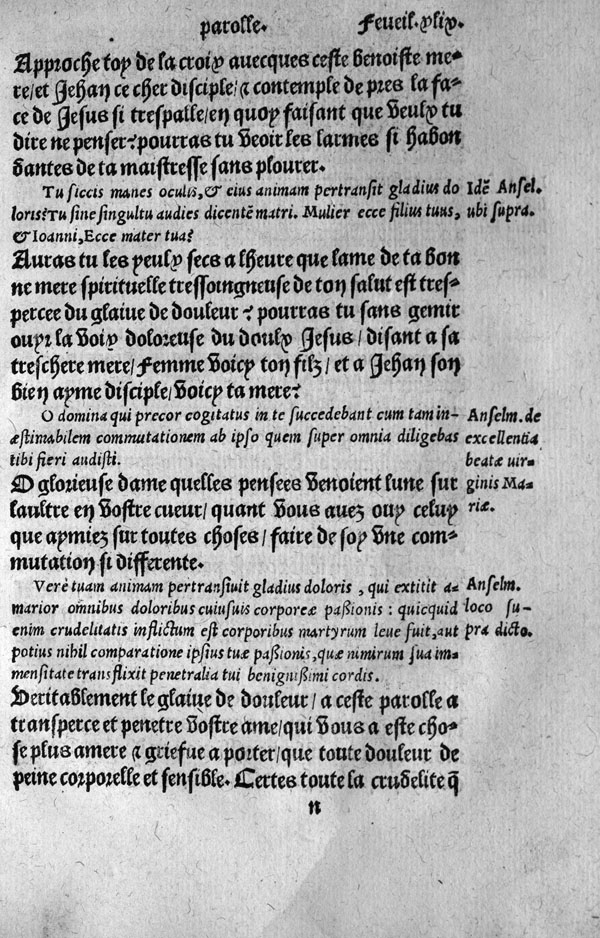 parolle. Feueil. xlix.
Approche toy de la croix auecques ceste benoiste me-
re/et Jehan ce cher disciple/& contemple de pres la fa-
ce de Jesus si trespalle/en quoy faisant que veulx tu
dire ne penser? pourras tu veoir les larmes si habon
dantes de ta maistresse sans plourer.
Tu siccis manes oculis, & eius animam pertransit gladius do
loris? Tu sine singultu audies dicentē matri. Mulier ecce filius tuus,
& Ioanni, Ecce mater tua?
Idē Ansel.
ubi supra.
Auras tu les yeulx secs a lheure que lame de ta bon
ne mere spirituelle tressoingneuse de ton salut est tres-
percee du glaiue de douleur? pourras tu sans gemir
ouyr la voix doloreuse du doulx Jesus/ disant a sa
treschere mere/ Femme voicy ton filz/ et a Jehan son
bien ayme disciple/ voicy ta mere?
O domina qui precor cogitatus in te succedebant cum tam in-
æstimabilem commutationem ab ipso quem super omnia diligebas
tibi fieri audisti.
Anselm. de
excellentia
beatæ uir-
ginis Ma-
riæ.
O glorieuse dame quelles pensees venoient lune sur
laultre en vostre cueur/ quant vous auez ouy celuy
que aymiez sur toutes choses/ faire de soy vne com-
mutation si differente.
Verè tuam animam pertransiuit gladius doloris, qui extitit a-
marior omnibus doloribus cuiusuis corporeæ paßionis: quicquid
enim crudelitatis inflictum est corporibus martyrum leue fuit, aut
potius nihil comparatione ipsius tuæ paßionis, quæ nimirum sua im-
mensitate transflixit penetralia tui benignißimi cordis.
Anselm.
loco su-
pra dicto.
Veritablement le glaiue de douleur/ a ceste parolle a
transperce et penetre vostre ame/qui vous a este cho-
se plus amere & griefue a porter/que toute douleur de
peine corporelle et sensible. Certes toute la crudelite q̄
n